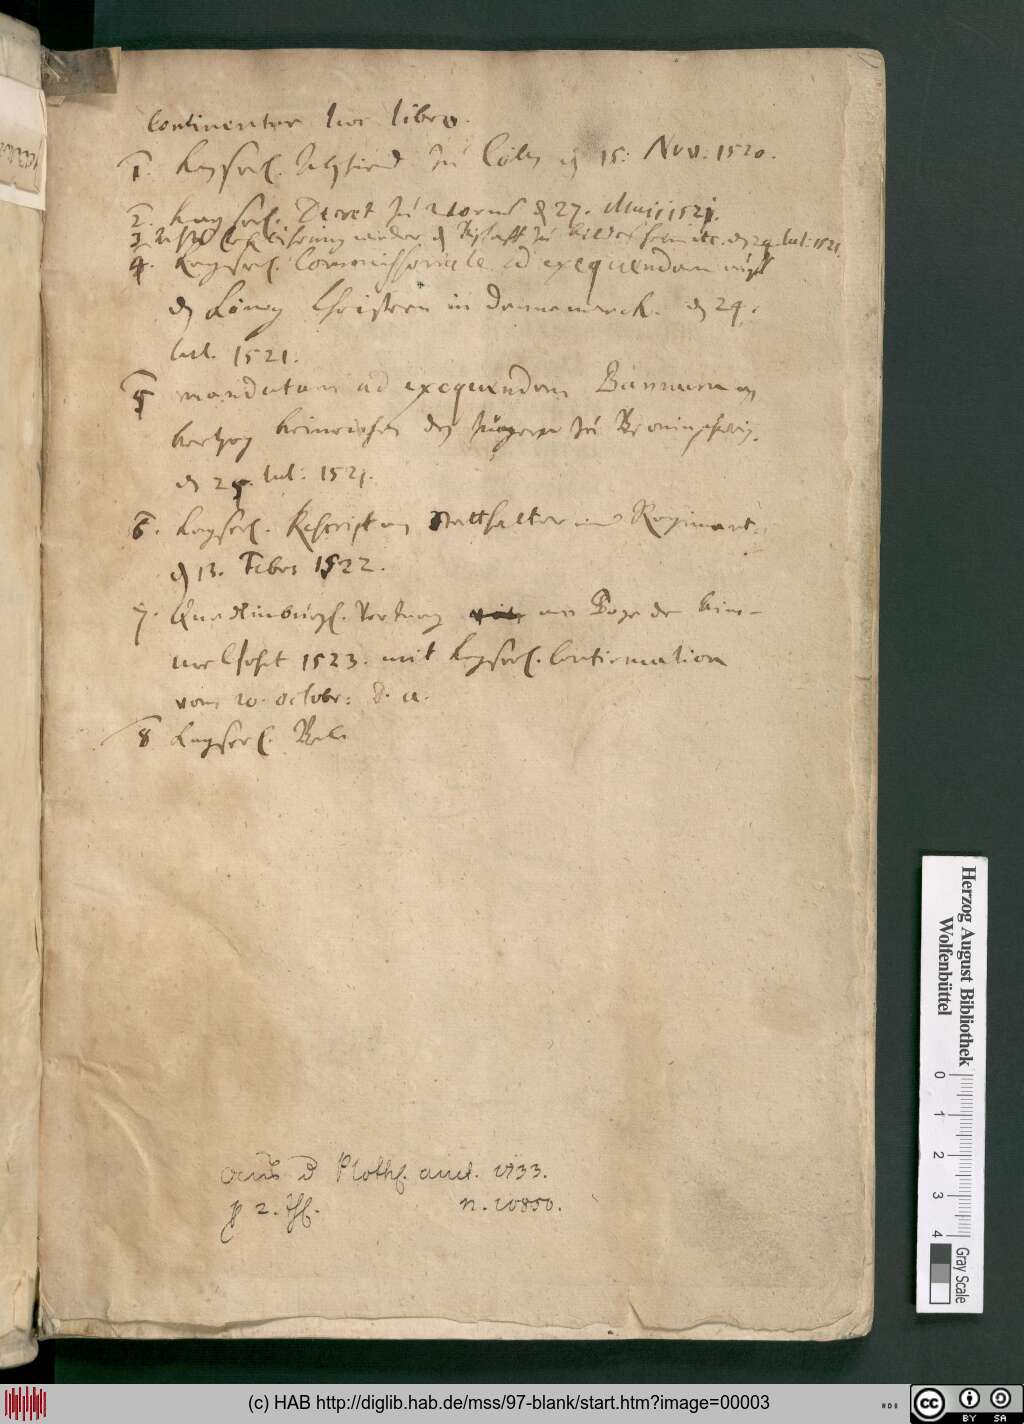 Continentur hoc libro.
1. Keyserl. Abschied zu Cöln dn 15. Nov. 1520.
2. Keyserl. Decret zu Worms dn 27. Maij 1521.
3. Achts Erklährung wieder dn Bischoff zu Hildesheim etc. den 24. Jul. 1521.
4. Keyserl. Commissoriale ad exequendam
dn König Christiern in Dennemarck. dn 24.
Jul. 1521.
5 mandatum ad exequendam Bannum an
Hertzog Heinrichen den Jüngern zu Braunschweig.
dn 24. Jul: 1521.
6. Keyserl. Rescript an Statthalter und Regiment.
dn 13. Febr 1522.
7. Quedlinburgl. Vertrag am Tage der Him-
melfahrt 1523. mit Keyserl. Confirmation
vom 20. Octobr: d. a.
8 Keyserl.
aus d Bloth. auct. 1733.
p 2. Th. n. 10850.
Herzog August Bibliothek
Wolfenbüttel
0 1 2 3 4
Gray Scale
(c) HAB http://diglib.hab.de/mss/97-blank/start.htm?image=00003
cc BY SA